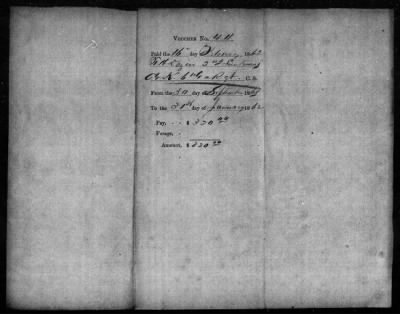 VOUCHER No. 44
Paid the 16th day February 1862
2nd Lieutenant
Co. K 6th Ga Regt. C.S.
From the 30 day September 1861
To the 31st day January 1862
Pay, - - $ 320.00
Forage, -
Amount, $ 320.00